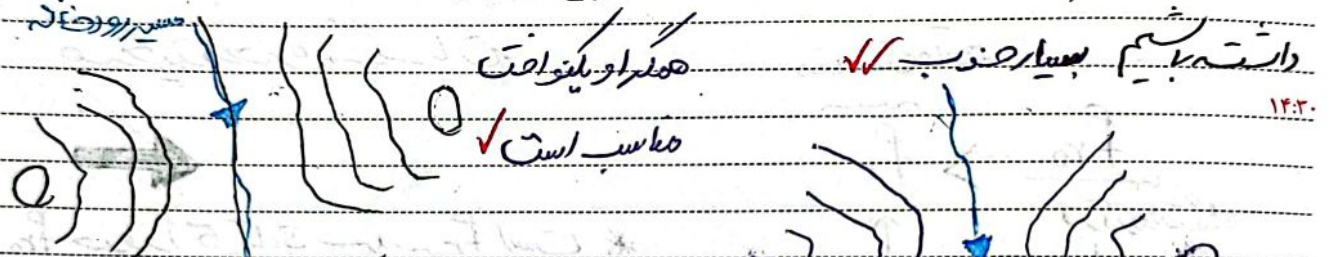 داشته باشیم بسیار خوب
۱۴:۳۰
همگرا و یکنواخت
مناسب است
مسیر رودخانه